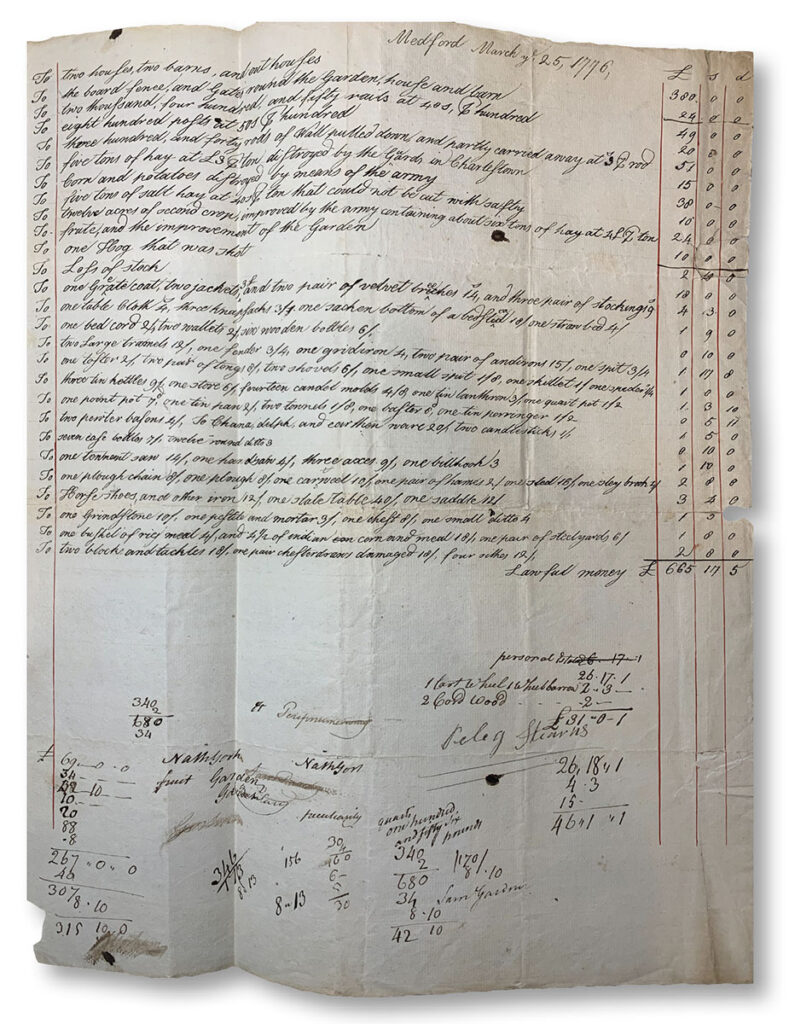 Medford March ye. 25, 1776,
£ s d
To two houses, two barns, and out houses 380 0 0
To the board fence, and Gates round the Garden, house and barn 24 0 0
To two thousand, four hundred, and fifty rails at 40s, ⅌ hundred 49 0 0
To eight hundred posts at 50s ⅌ hundred 20 0 0
To three hundred, and forty rods of Wall pulled down, and partly carried away at 3/ ⅌ rod 51 0 0
To five tons of hay at £3 ⅌ ton distroyed by the Gards in Charlestown 15 0 0
To Corn and potatoes distroyed by means of the army 38 0
To five tons of salt hay at 40s ⅌ ton that could not be cut with safty 10 0 0
To twelve acres of second crop, improved by the army containing about six tons of hay at 4£ ⅌ ton 24 0 0
To frute, and the improvement of the Garden 10 0 0
To one Hog that was shot 2 0
To Loss of stock 18 0 0
To one Grate coat, two jackets, and two pair of velvet briches and three pair of stockings 9 4 13 0
To one table Cloth three knapsacks 3/4 one sachen bottom of a bedsted 18/ one straw bed 4/ 1 9 0
To one bed cord 2/, two wallets 2/ six wooden bottles 6/ 0 10 0
To two Large tramels 12/, one fender 3/4, one gridiron 4, two pair of andirons 15/, one spit 3/4 1 17 8
To one toster 2/, two pair of tongs 8/, two shovels 6/, one small spit 1/8, one skellet 1/ one spider 1/4 1 0 0
To three tin kettles 9/, one stove 6/, fourteen candel molds 4/8, one tin lanthron 3/, one quart pot 1/2 1 3 10
To one point pot 7d, one tin pan 2/, two tonnels 1/8, one baster 8, one tin porringer 1/2 0 5 11
To two pewter basons 4/, To China, delph, and earthen ware 20/, two candlesticks 1/ 1 5 0
To seven case bottles 7/, twelve round ditto 3 0 10 0
To one tennent saw 14/, one hand saw 4/, three axces 9/, one billhook 3 1 10 0
To one plough chain 8/, one plough 8/ one cartweel 10/, one pair of hames 2/ one sled 18/, one sley 2 8 8
To Horse shoes, and other iron 12/, one slate table 40/, one saddle 12/ 3 4 0
To one Grindstone 10/, one pestle and mortar 3/, one chest 8/, one small ditto 4 1 5
To one bushel of rieg meal 4/, and 4½ of endian corn and meal 18/, one pair of steelyards 6/ 1 8 0
To two blocks and tackles 18/, one pair chesterdraws damaged 18/, four sithes 12/ 2 8 0
Lawful money £ 665 17 5
personal Estate 26-17-1
26-17-1
1 Cart Wheel 1 Wheelbarrow 2-3-
2 Cord Wood -2-
£31-0-1
Peleg Stearns
26,18,,1
4-3
15-
46,,1,,1
340
2
680
34
£
69-0-0
34
10
20
88
-8
267,,0,,0
46
307
8-10
315 10,,0
NathGorh NathGorh
fruit Garden
Garden
peculiarity
346
156
8,,13
30
quarts
one hundred,
and fifty six
pounds
340
2
680
34
8-10
42 10
170/
8,,10
Sam Garden